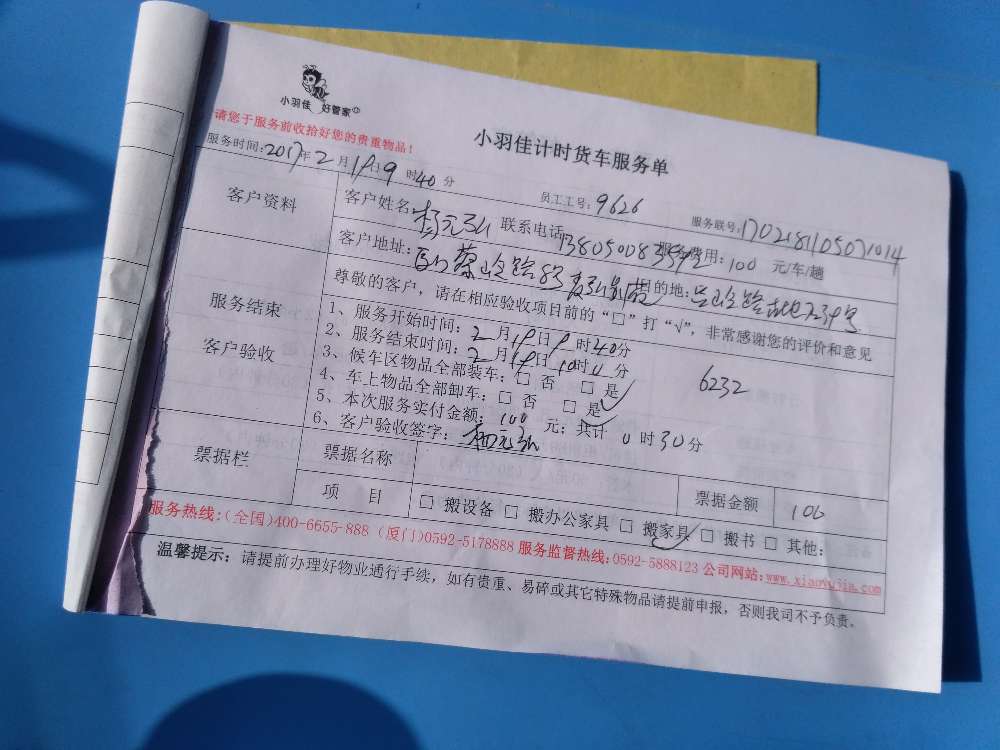 小羽佳 好管家
请您于服务前收拾好您的贵重物品!
小羽佳计时货车服务单
服务时间:2017年2月18日9时40分 员工工号:9626 服务联号:1702181105071014
客户资料 客户姓名: 联系电话: 服务费用:100元/车/趟
客户地址: 目的地:
服务结束 客户验收
尊敬的客户,请在相应验收项目前的“□”打“√”,非常感谢您的评价和意见
1、服务开始时间:2月18日9时40分
2、服务结束时间:2月18日10时11分 6232
3、候车区物品全部装车:□ 否 □ 是✓
4、车上物品全部卸车:□ 否 □ 是✓
5、本次服务实付金额:100元;共计0时30分
6、客户验收签字:
票据栏 票据名称 票据金额 100
项 目 □ 搬设备 □ 搬办公家具 □ 搬家具✓ □ 搬书 □ 其他:
服务热线:(全国)400-6655-888 (厦门)0592-5178888 服务监督热线:0592-5888123 公司网站:www.xiaoyujia.com
温馨提示:请提前办理好物业通行手续,如有贵重、易碎或其它特殊物品请提前申报,否则我司不予负责。